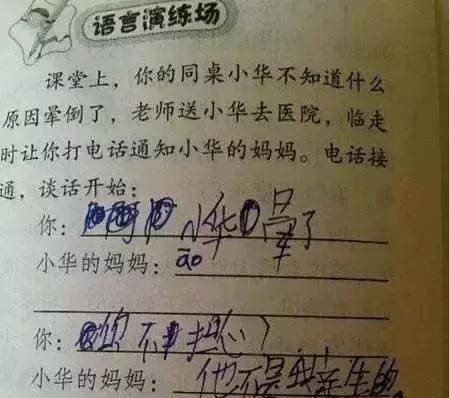 语言演练场
课堂上，你的同桌小华不知道什么
原因晕倒了，老师送小华去医院，临走
时让你打电话通知小华的妈妈。电话接
通，谈话开始：
你：阿 小华晕了
小华的妈妈：āo
你：你不担心？
小华的妈妈：他不是我亲生的。